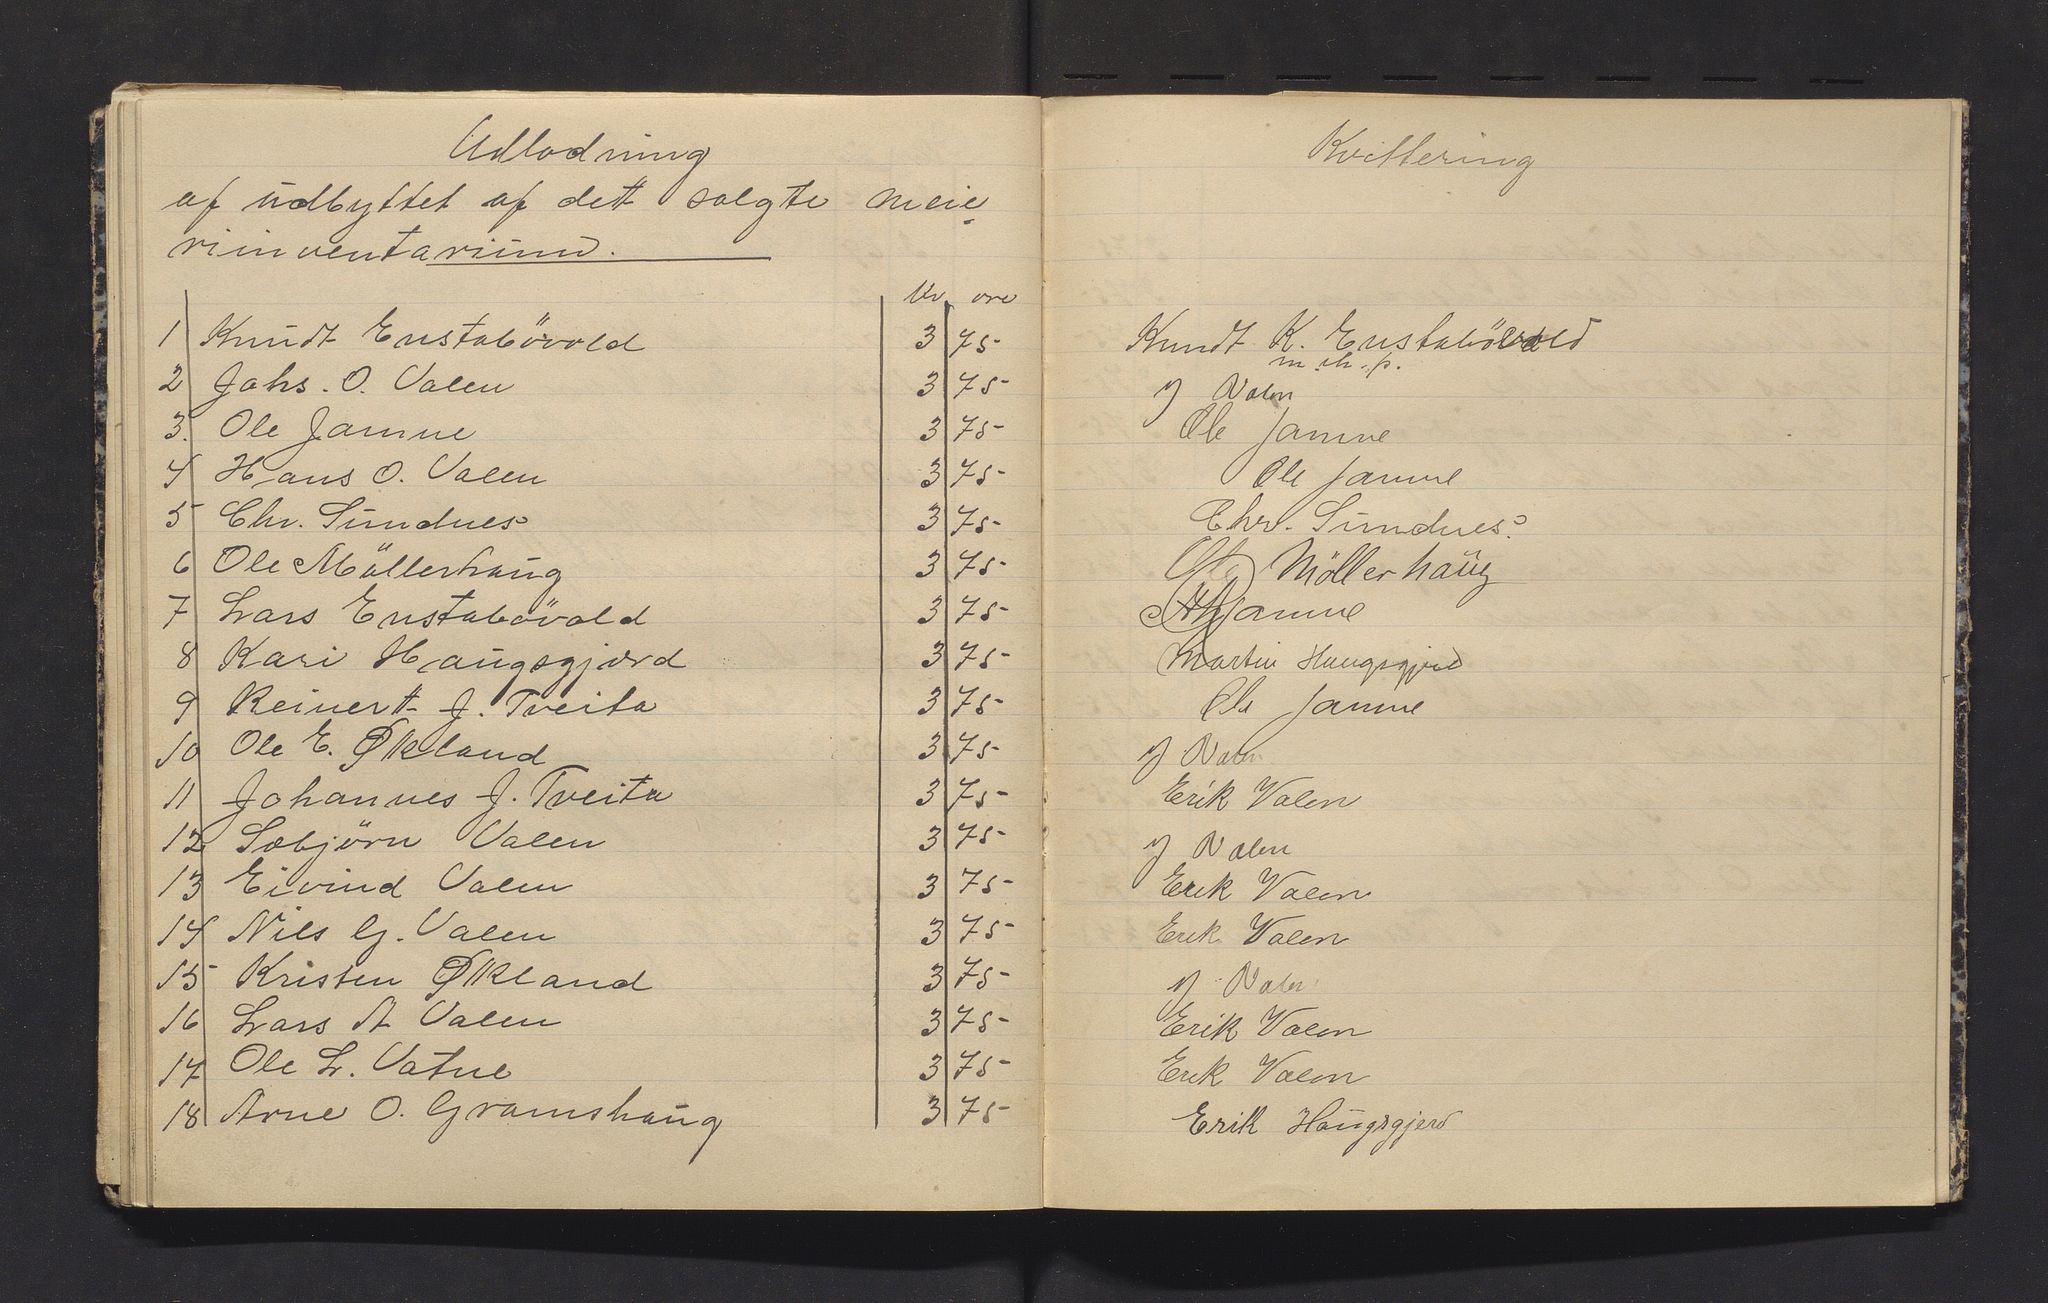 Udlodning
af udbyttet af dett solgte meie
riinventarium.
Kr øre
1 Knudt Enstabövold 3 75
2 Johs. O. Valen 3 75
3. Ole Jamne 3 75
4 Hans O. Valen 3 75
5 Chr. Sundnes 3 75
6 Ole Möllerhaug 3 75
7 Lars Enstabövold 3 75
8 Kari Haugsgjerd 3 75
9 Reinertt J. Tveita 3 75
10 Ole E. Økland 3 75
11 Johannes J. Tveita 3 75
12 Sæbjörn Valen 3 75
13 Eivind Valen 3 75
14 Nils G. Valen 3 75
15 Kristen Økland 3 75
16 Lars A Valen 3 75
17 Ole L. Vatne 3 75
18 Arne O. Gramshaug 3 75
Kvittering
Knudt K. Enstabövold
m. ih. p.
J Valen
Ole Jamne
Ole Jamne
Chr. Sundnes
Ole Möllerhaug
Jamne
Martin Haugsgjerd
Ole Jamne
J Valen
Erik Valen
J Valen
Erik Valen
Erik Valen
J Valen
Erik Valen
Erik Valen
Erik Haugsgjerd